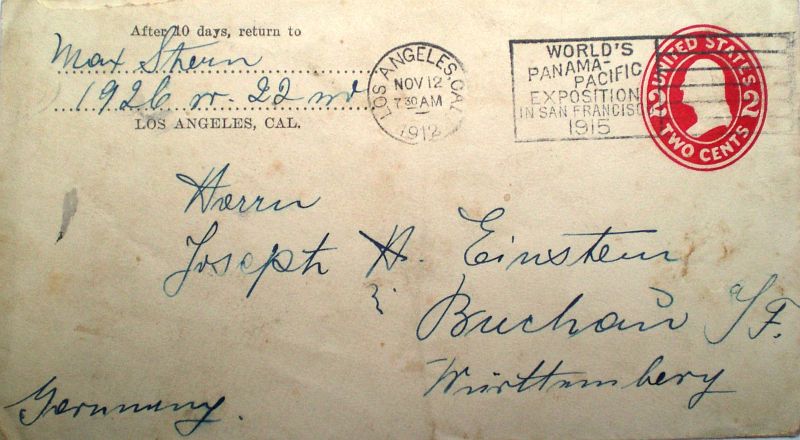 After 10 days, return to
Max Stern
1926 W. 22nd
LOS ANGELES, CAL.
LOS ANGELES, CAL.
NOV 12
7 30 AM
1912
WORLD'S
PANAMA-
PACIFIC
EXPOSITION
IN SAN FRANCISCO
1915
UNITED STATES
2 2
TWO CENTS
Herrn
Joseph H. Einstein
Buchau a/F.
Württemberg
Germany.